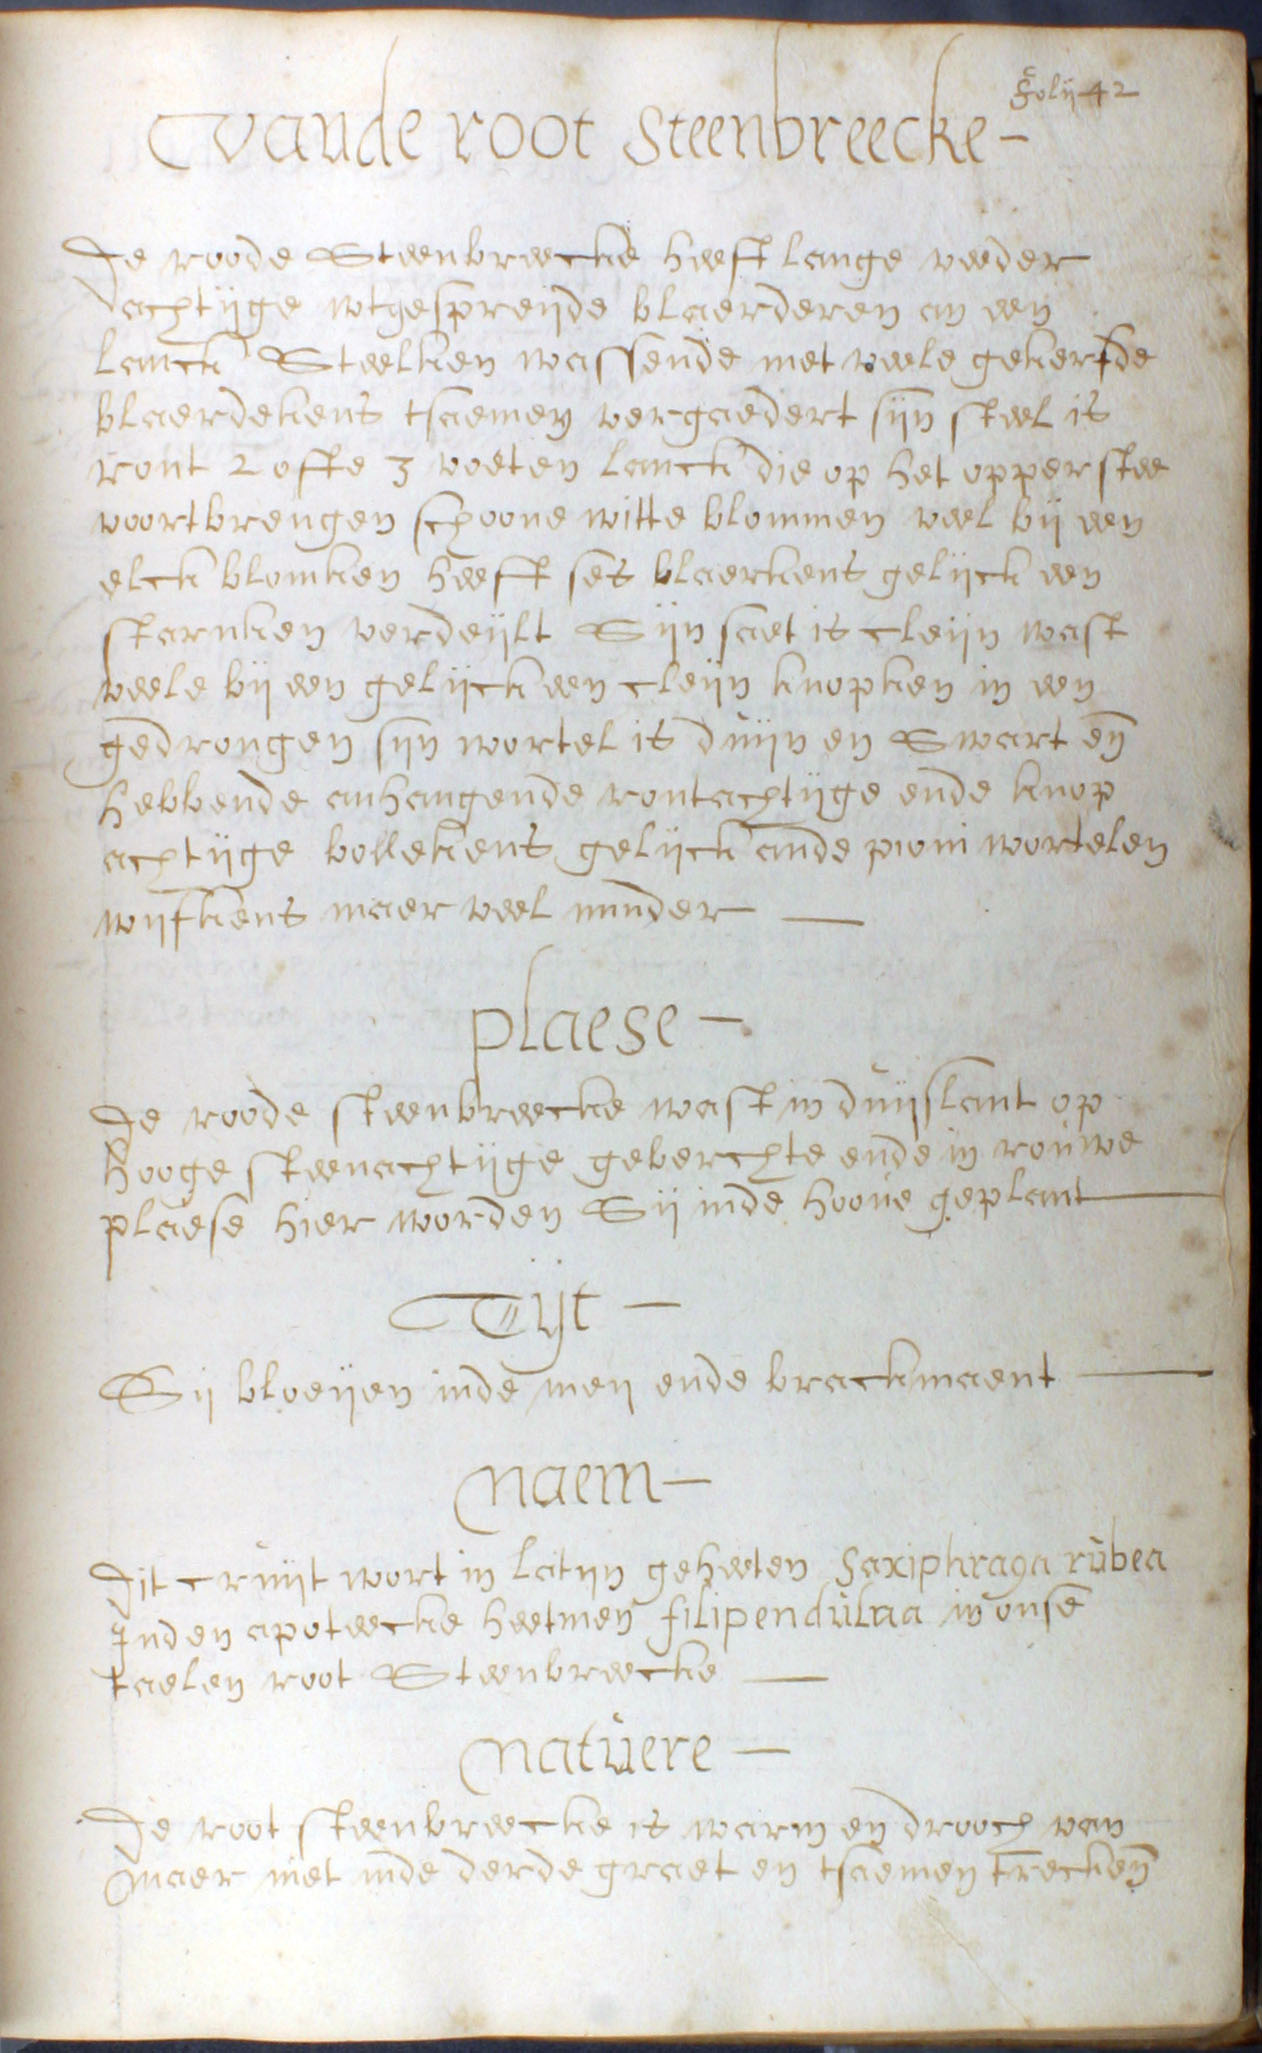 Folij 42
Vande root Steenbreecke
De roode Steenbreecke heeft lange veeder
achtijge wtgespreijde blaerderen an een
lanck Steelken wassende met veele gekerfde
blaerdekens tsaemen vergaedert sijn steel is
ront 2 ofte 3 voeten lanck die op het opperstee
voortbrengen schoone witte blommen veel bij een
elck blomken heeft ses blaerkens gelijck een
starnken verdeijlt Sijn saet is cleijn wast
veele bij een gelijck een cleijn knopken in een
gedrongen sijn wortel is duijn en Swart en
hebbende anhangende rontachtijge ende knop
achtijge bollekens gelijck ande pioni wortelen
wijfkens maer veel minder
plaese
De roode steenbreecke wast in duijslant op
hooge steenachtijge geberchte ende in rouwe
plaese hier worden Sij inde hoove geplant
Tijt
Sij bloeijen inde meij ende brackmaent
Naem
Dit cruijt wort in latijn geheeten Saxiphraga rubea
Inden apoteecke heetmen filipendulaa in onse
taelen root Steenbreecke
Natuere
De root steenbreecke is warm en drooch van
maer niet inde derde graet en tsaemen trecken